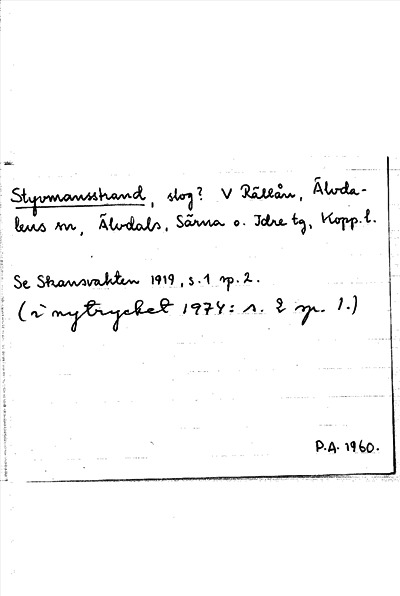 Styvmansstrand, slog? V Rällån, Älvda-
lens sn, Älvdals, Särna o. Idre tg, Kopp. l.
Se Skansvakten 1919, s. 1 sp. 2.
(i nytrycket 1974: s. 2 sp. 1.)
P.A. 1960.